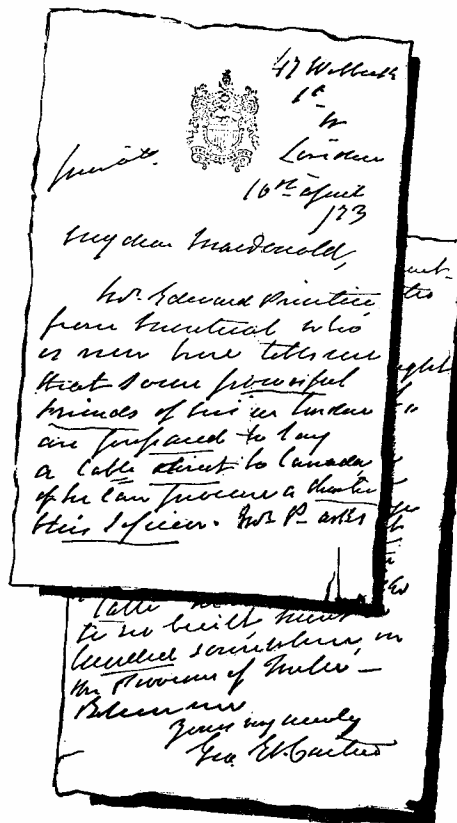 47 Welbeck
St
W
London
Private.
10th April
/73
My dear Macdonald,
Mr. Edward Prentice
from Montreal who
is now here tells me
that some powerful
friends of his in London
are prepared to lay
a cable direct to Canada,
if he can procure a charter
this Session. Mr. P— asks
ght
Cable
to be built must
landed somewhere in
the Province of Quebec —
Believe me
Yours very truly
Geo. Et. Cartier